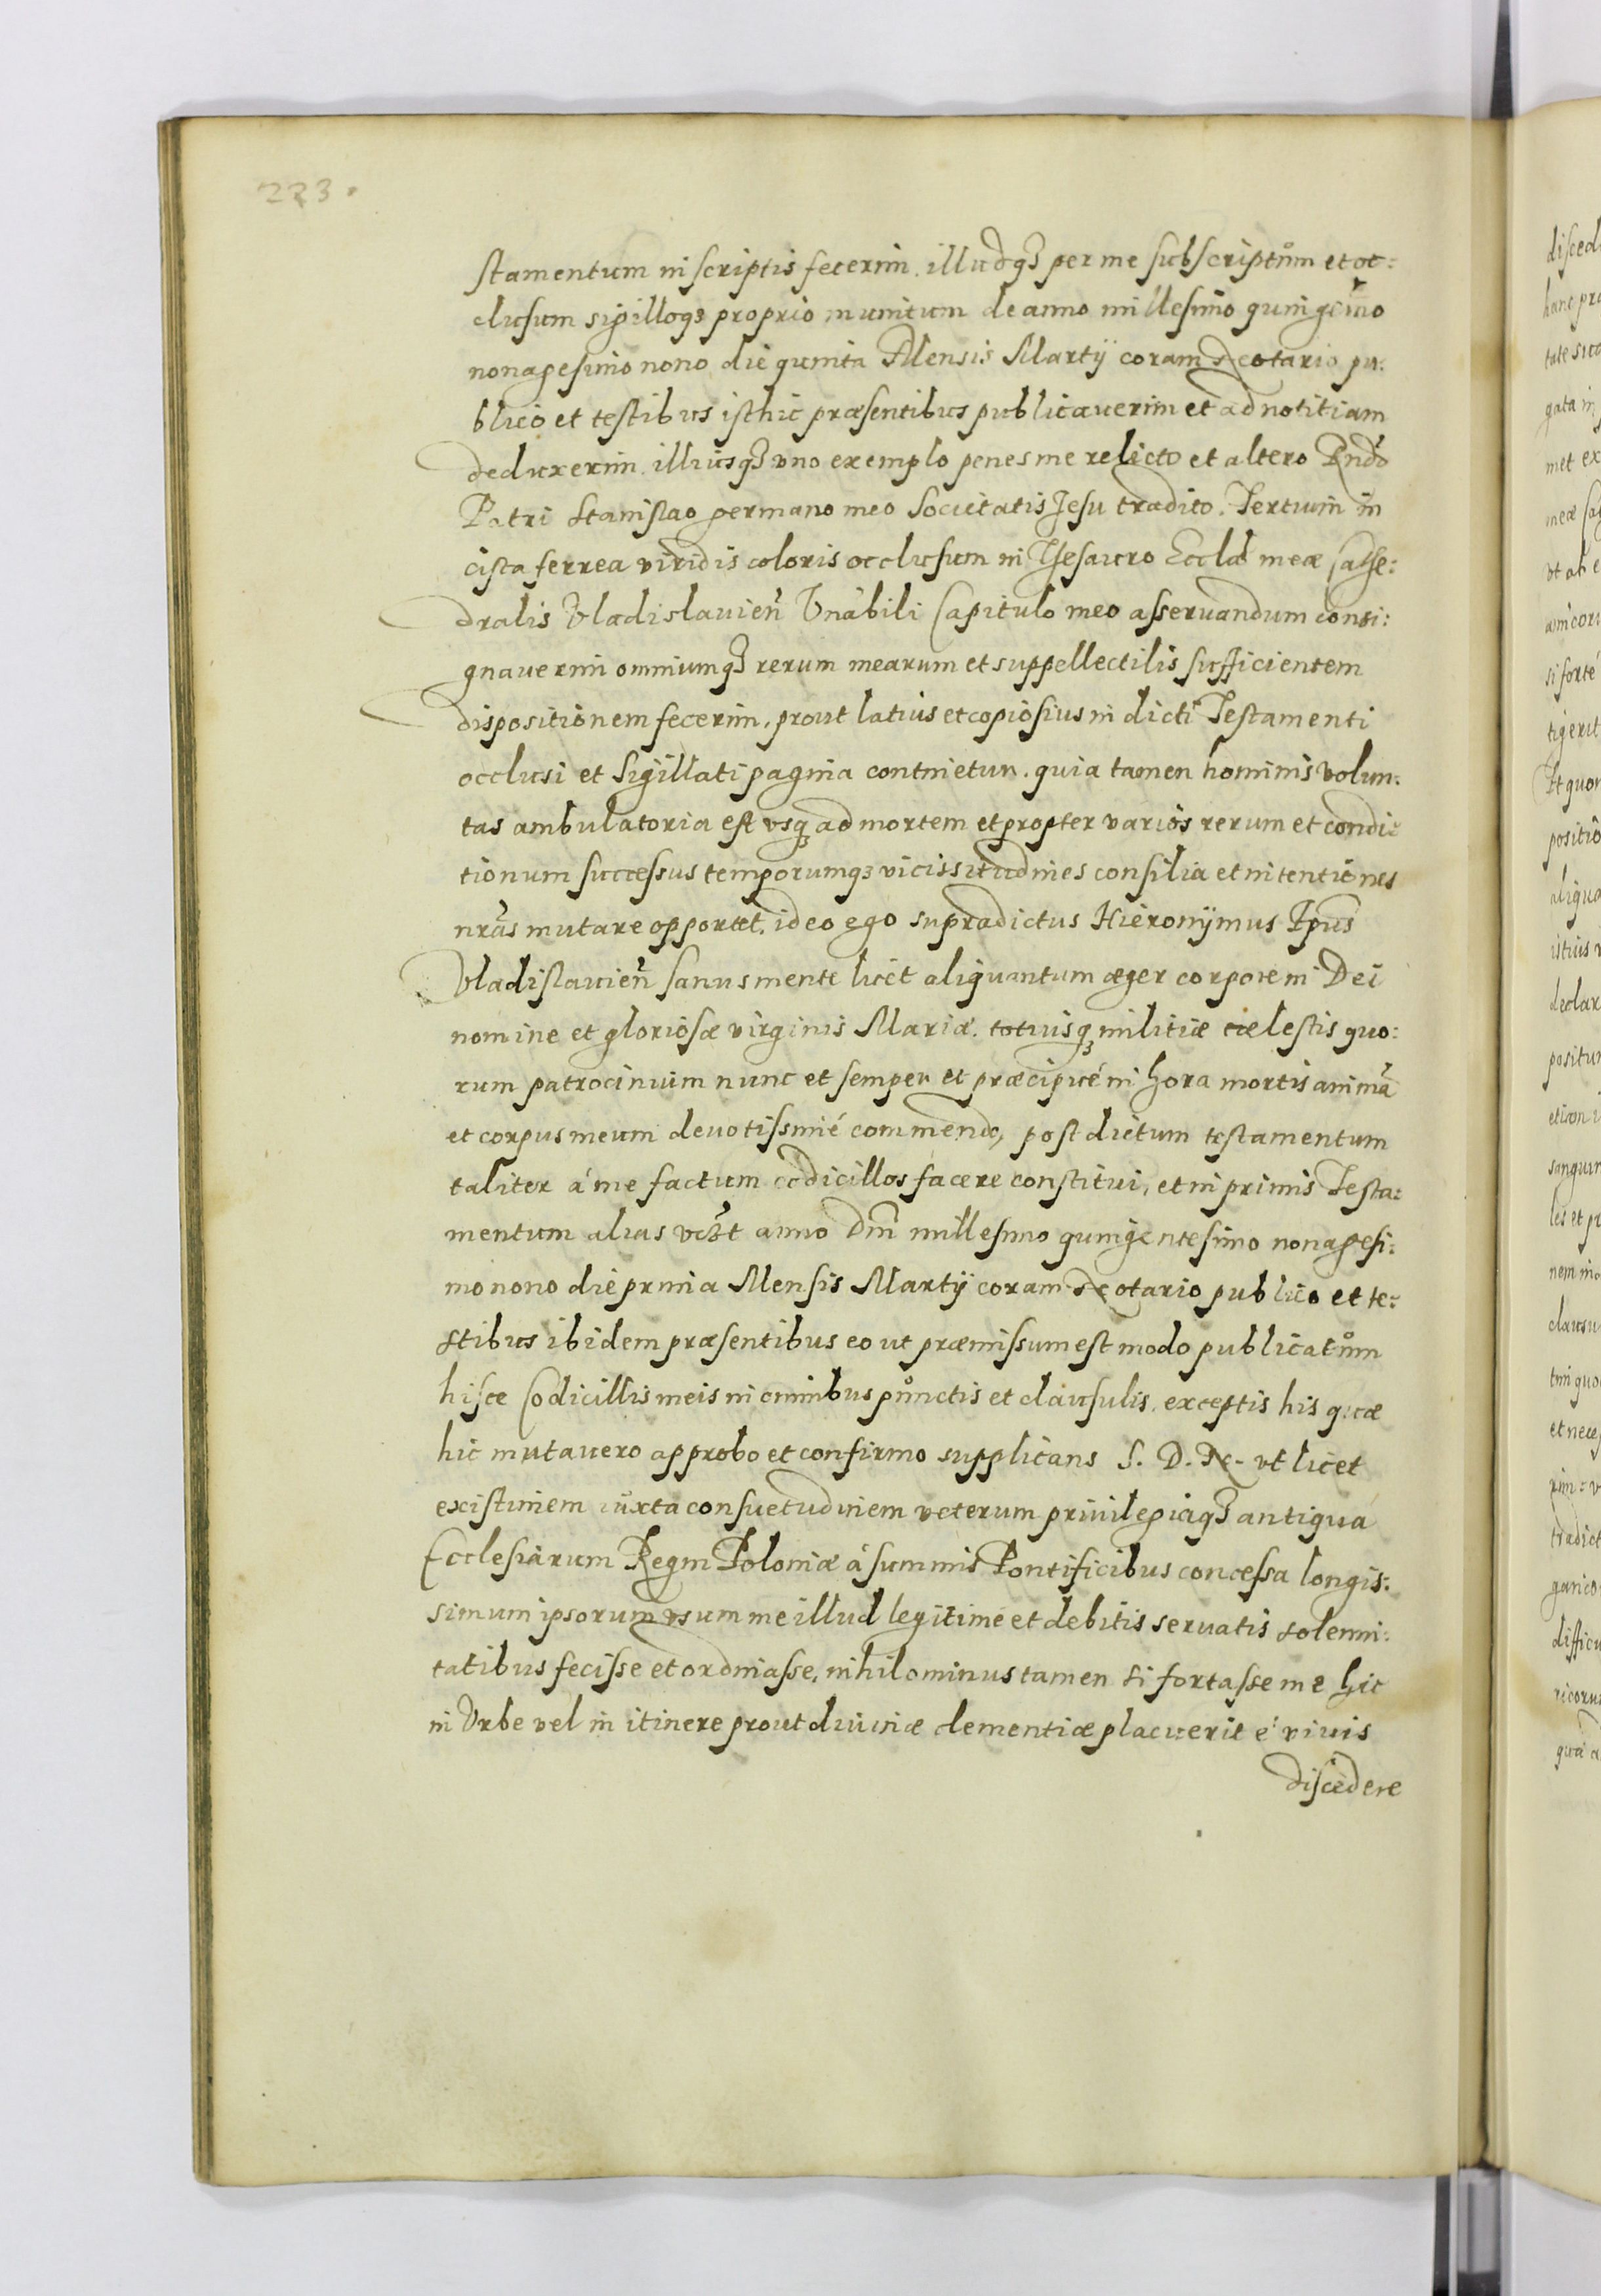 223.
stamentum in scriptis fecerim. illudq₃ per me subscriptům et oc:
clusum sigilloq₃ proprio munitum de anno millesimo quingẽmo
nonagesimo nono die quinta Mensis Martÿ coram Notario pu:
blico et testibus isthic præsentibus publicauerim et ad notitiam
deduxerim. illiusq₃ vno exemplo penes me relicto et altero Rndo
Patri Stanislao germano meo Societatis Jesu tradito. Tertium in
cista ferrea viridis coloris occlusum in Thesauro Eccla meæ Cathe:
dralis Vladislauien̄ Vnàbili Capitulo meo asseruandum consi:
gnauerim omniumq₃ rerum mearum et suppellectilis sufficientem
dispositionem fecerim, prout latius et copiosius in dicti Testamenti
occlusi et sigillati pagina continetur. quia tamen hominis volun:
tas ambulatoria est vsq₃ ad mortem et propter varios rerum et condi:
tionum successus temporumq₃ vicissitudines consilia et intentiones
nrãs mutare opportet. ideo ego supradictus Hieronÿmus Epus
Vladislauien̄ sanus mente licet aliquantum æger corpore in Dei
nomine et gloriosæ virginis Mariæ. totiusq₃ militiæ cælestis quo:
rum patrocinium nunc et semper et præcipué in hora mortis animã
et corpus meum deuotissimé commendo, post dictum testamentum
taliter á me factum codicillos facere constitui, et in primis Testa:
mentum alias vczt anno Dnĩ millesimo quingentesimo nonagesi:
mo nono die prima Mensis Martÿ coram Notario publico et te:
stibus ibidem præsentibus eo ut præmissum est modo publicatům
hisce Codicillis meis in omnibus půnctis et clausulis, exceptis his quæ
hic mutauero approbo et confirmo supplicans S. D. N. vt licet
existimem iuxta consuetudinem veterum priuilegiaq₃ antiqua
Ecclesiarum Regni Poloniæ á summis Pontificibus concessa longis:
simum ipsorum vsum me illud legitimé et debitis seruatis solenni:
tatibus fecisse et ordinasse, nihilominus tamen si fortasse me hic
in Vrbe vel in itinere prout diuinæ clementiæ placuerit é viuis
discedere